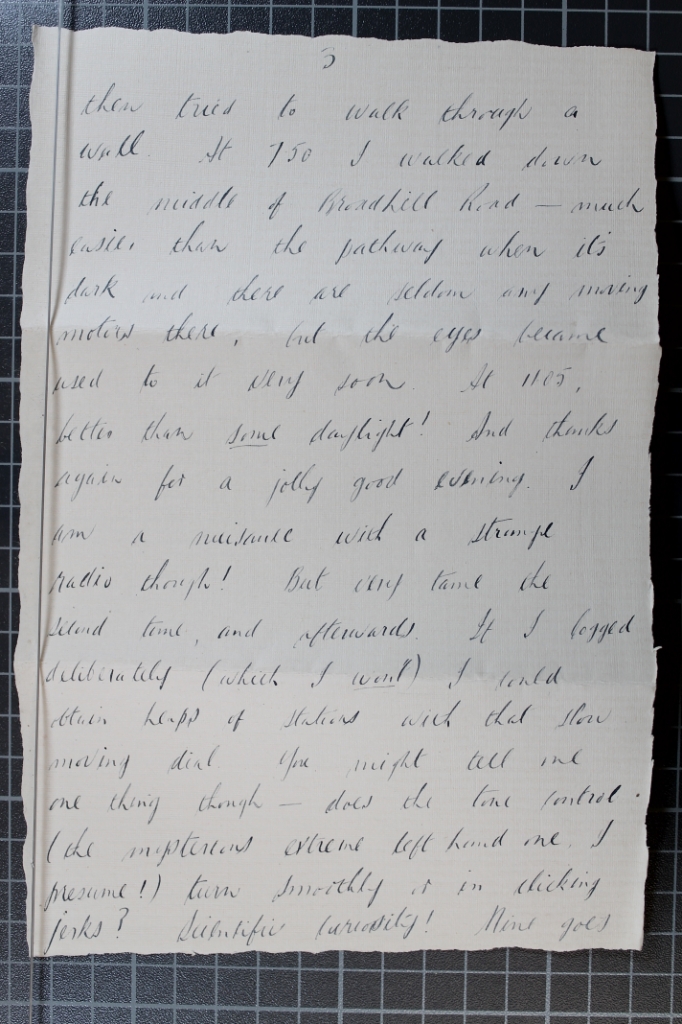 3
then tried to walk through a
wall. At 7 50 I walked down
the middle of Broadhill Road — much
easier than the pathway when it's
dark and there are seldom any moving
motors there, but the eyes became
used to it very soon. At 11 05,
better than some daylight! And thanks
again for a jolly good evening. I
am a nuisance with a strange
radio though! But very tame the
second time, and afterwards. If I logged
deliberately (which I won't) I could
obtain heaps of stations with that slow
moving dial. You might tell me
one thing though — does the tone control
(the mysterious extreme left hand one, I
presume!) turn smoothly or in clicking
jerks? Scientific curiosity! Mine goes